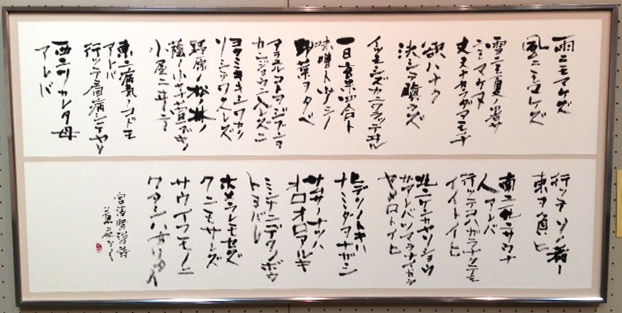 雨ニモマケズ
風ニモマケズ
雪ニモ夏ノ暑サ
ニモマケヌ
丈夫ナカラダヲモチ
欲ハナク
決シテ瞋ラズ
イツモシズカニワラッテヰル
一日ニ玄米四合ト
味噌ト少シノ
野菜ヲタベ
アラユルコトヲジブンヲ
カンジョウニ入レズニ
ヨクミキキシワカリ
ソシテワスレズ
野原ノ松ノ林ノ
蔭ノ小サナ萓ブキノ
小屋ニヰテ
東ニ病気ノコドモ
アレバ
行ッテ看病シテヤリ
西ニツカレタ母
アレバ
行ッテソノ稲ノ
束ヲ負ヒ
南ニ死ニサウナ
人アレバ
行ッテコハガラナクテモ
イイトイヒ
北ニケンクヮヤソショウ
ガアレバツマラナイカラ
ヤメロトイヒ
ヒデリノトキハ
ナミダヲナガシ
サムサノナツハ
オロオロアルキ
ミンナニデクノボウ
トヨバレ
ホメラレモセズ
クニモサレズ
サウイフモノニ
ワタシハナリタイ
宮澤賢治詩